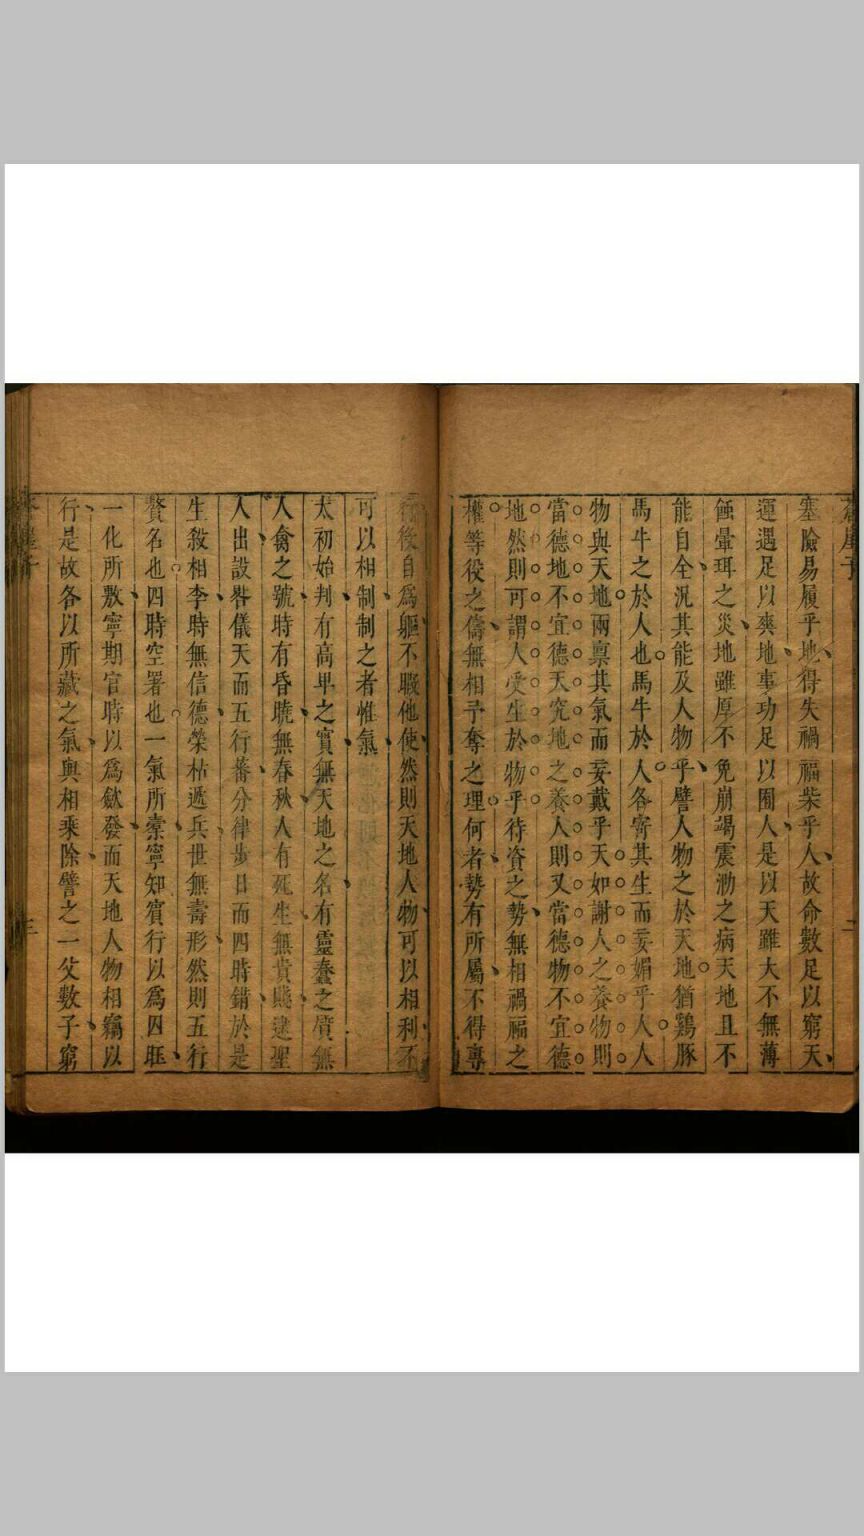 塞險易履乎地得失禍福柴乎人故命數足以窮天
運遇足以爽地事功足以囿人是以天雖大不無薄
蝕暈珥之災地雖厚不免崩竭震泐之病天地且不
能自全況其能及人物乎譬人物之於天地猶鷄豚
馬牛之於人也馬牛於人各寄其生而妄媚乎人人
物與天地兩稟其氣而妄戴乎天如謝人之養物則
當德地不宜德天究地之養人則又當德物不宜德
地然則可謂人受生於物乎待資之勢無相禍福之
權等役之儔無相予奪之理何者勢有所屬不得專
行役自爲軀不職他使然則天地人物可以相利不
可以相制制之者惟氣
太初始判有高卑之實無天地之名有靈蠢之質無
人禽之號時有昏曉無春秋人有死生無貴賤逮聖
人出設晷儀天而五行蕃分律步日而四時錯於是
生殺相李時無信德榮枯遞兵世無壽形然則五行
贅名也四時空署也一氣所橐寧知賓行以爲四
一化所敷寧期官時以爲歛發而天地人物相竊以
行是故各以所藏之氣與相乘除譬之一父數子窮